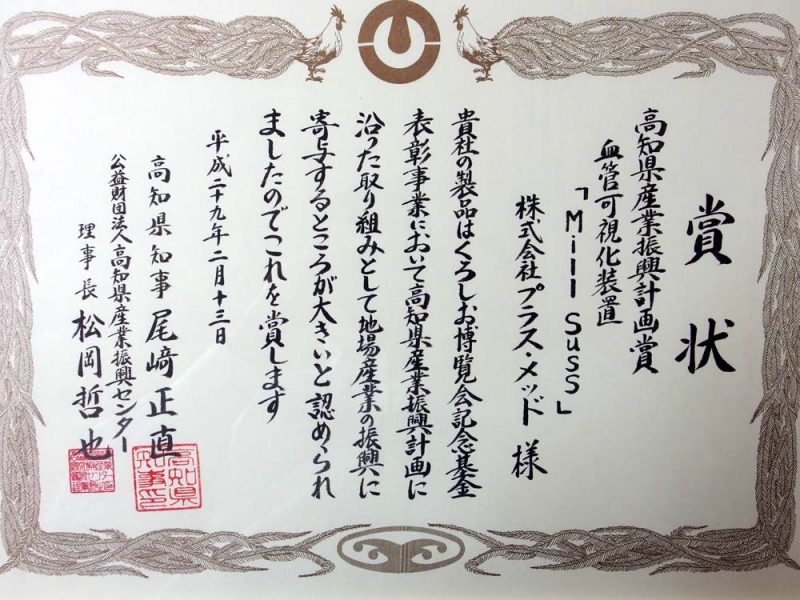 賞状
高知県産業振興計画賞
血管可視化装置
「Mill Suss」
株式会社プラス・メッド 様
貴社の製品はくろしお博覧会記念基金
表彰事業において高知県産業振興計画に
沿った取り組みとして地場産業の振興に
寄与するところが大きいと認められ
ましたのでこれを賞します
平成二十九年二月十三日
高知県知事 尾﨑正直
公益財団法人高知県産業振興センター
理事長 松岡哲也
高知県知事之印